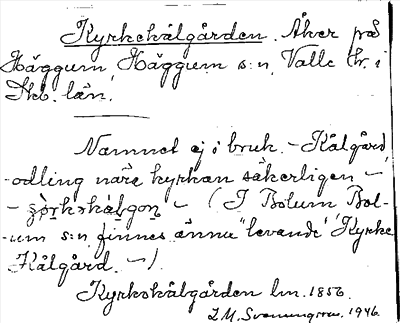 Kyrkekålgården. Åker på
Häggum, Häggum s:n, Valle hr. i
Skb. län.
Namnet ej i bruk. – Kålgård
-odling nära kyrkan säkerligen –
– ( I Bolum Bol-
-um s:n finnes ännu "levande" Kyrke
Kålgård. –).
Kyrkokålgården lm. 1856.
L.M. Svenungsson. 1946.